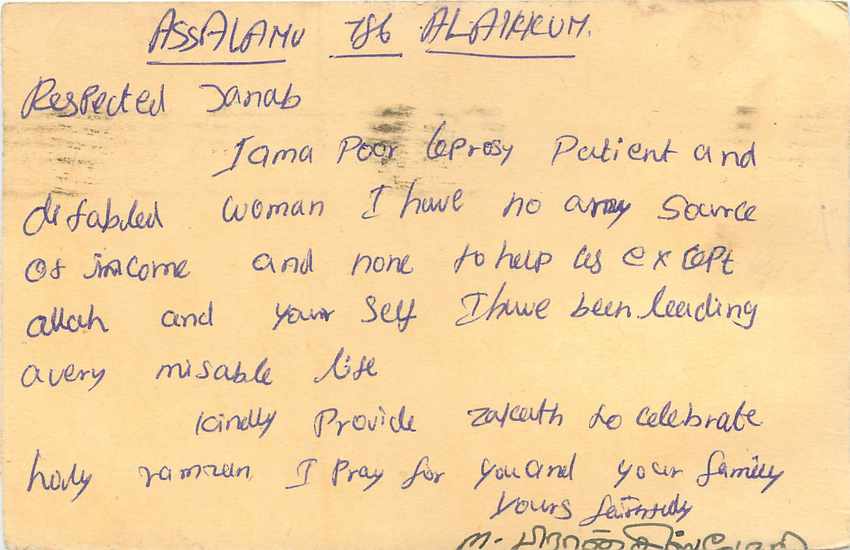 ASSALAMU 786 ALAIKKUM.
Respected Janab
I ama Poor leprosy Patient and
disabled woman I have no any Source
of income and none to help us except
allah and your Self I have been leading
avery misable life
kindly Provide zakath to celebrate
holy ramzan I Pray for you and your family
yours faithfully